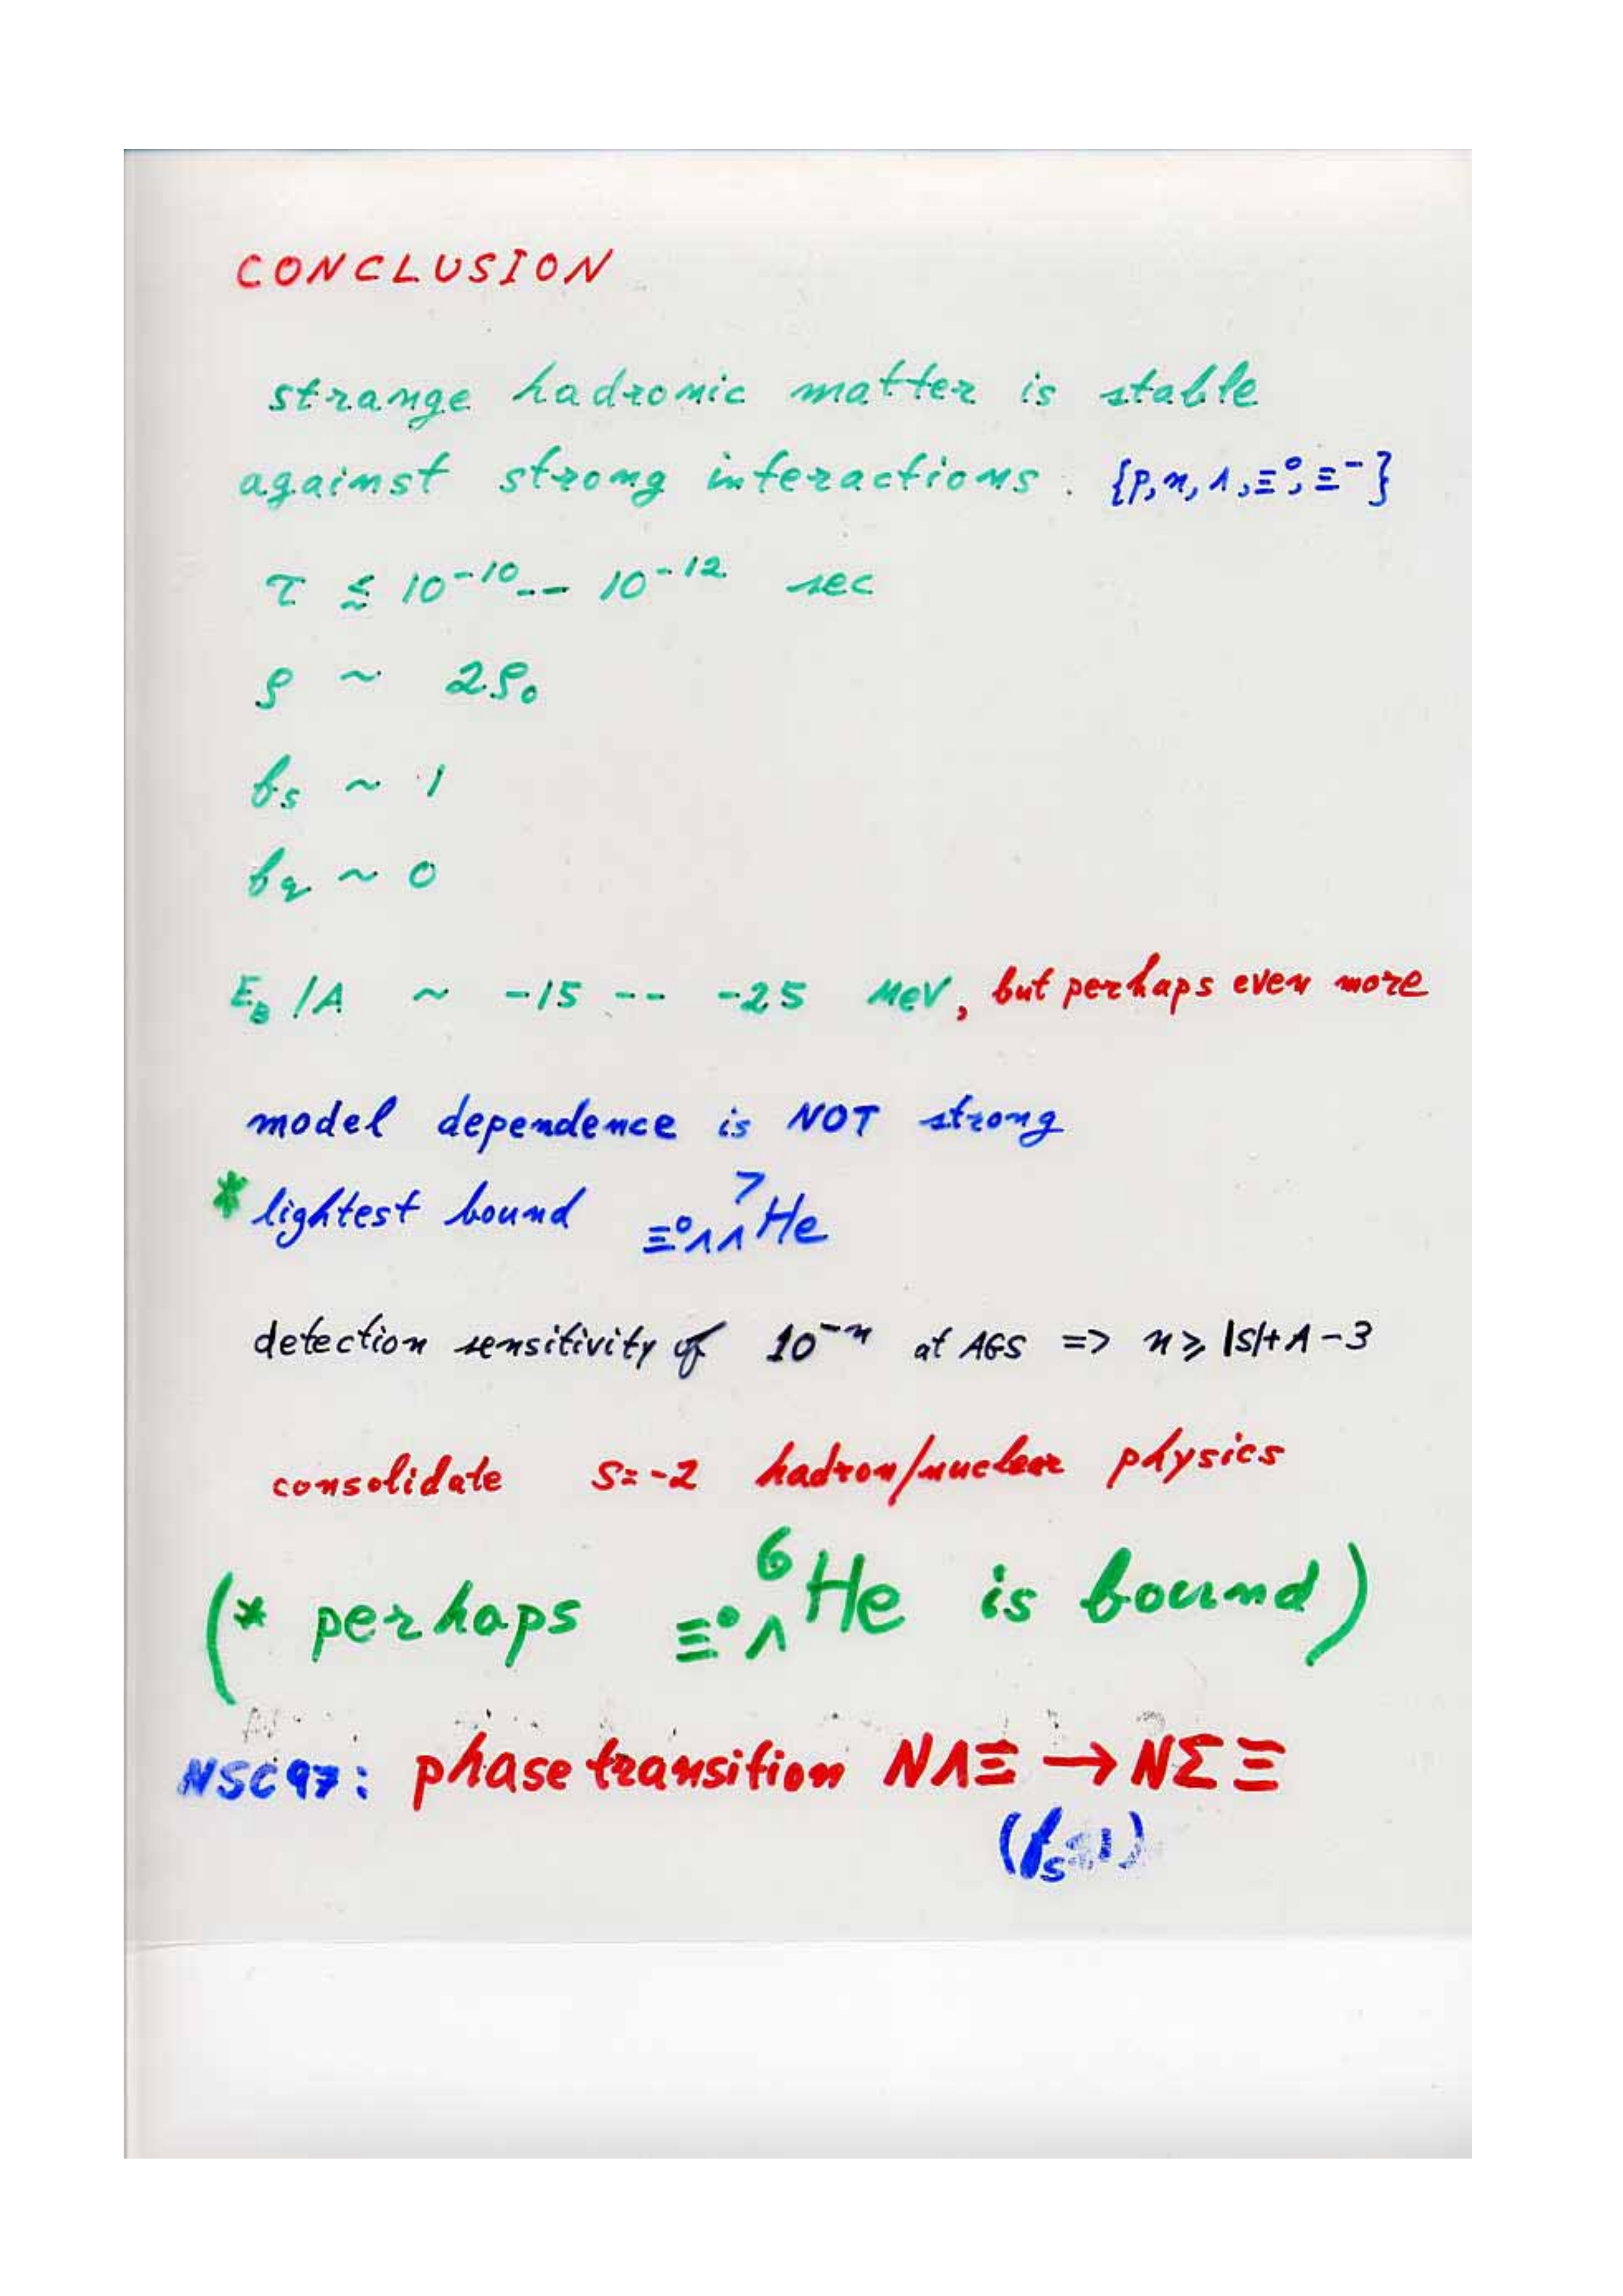 CONCLUSION
strange hadronic matter is stable
against strong interactions. {p, n, Λ, Ξ⁰, Ξ⁻}
τ ≲ 10⁻¹⁰ -- 10⁻¹² sec
ρ ~ 2ρ₀
fₛ ~ 1
f_q ~ 0
E_B /A ~ -15 -- -25 MeV, but perhaps even more
model dependence is NOT strong
* lightest bound ⁷_Ξ⁰ΛΛHe
detection sensitivity of 10⁻ⁿ at AGS => n ⩾ |S|+A-3
consolidate S=-2 hadron/nuclear physics
(* perhaps ⁶_Ξ⁰ΛHe is bound)
NSC97: phase transition NΛΞ → NΣΞ